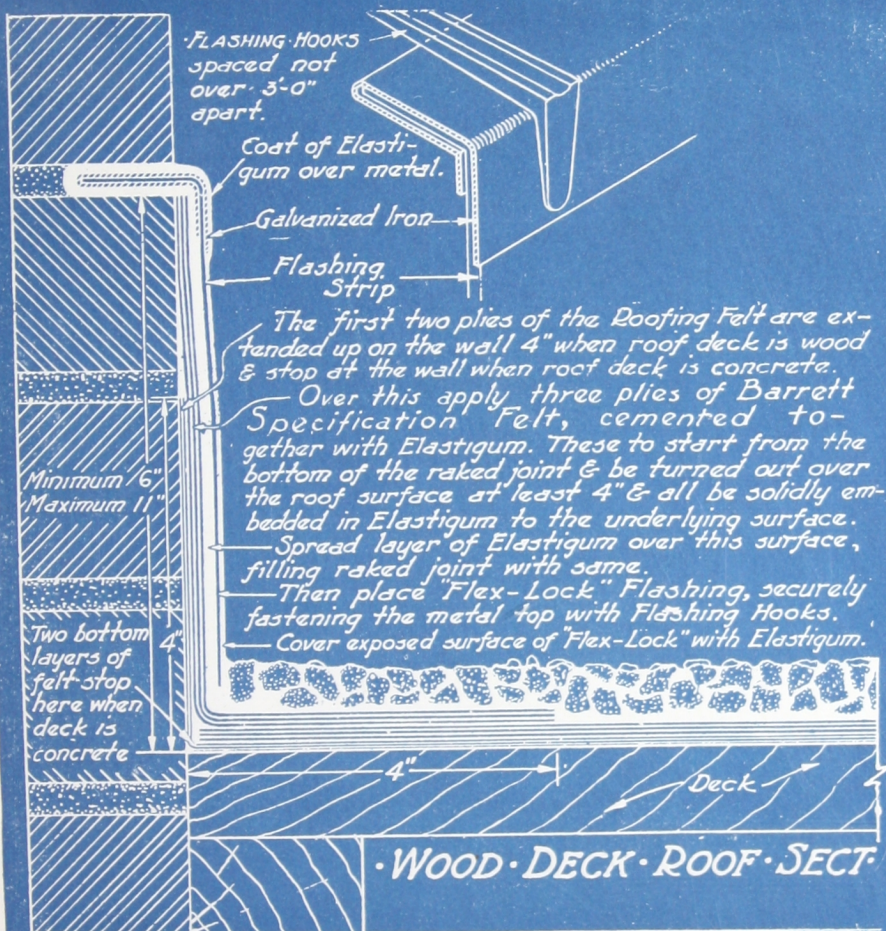 ·FLASHING·HOOKS
spaced not
over 3'-0"
apart.
Coat of Elasti-
gum over metal.
Galvanized Iron
Flashing
Strip
The first two plies of the Roofing Felt are ex-
tended up on the wall 4" when roof deck is wood
& stop at the wall when roof deck is concrete.
Over this apply three plies of Barrett
Specification Felt, cemented to-
gether with Elastigum. These to start from the
bottom of the raked joint & be turned out over
the roof surface at least 4" & all be solidly em-
bedded in Elastigum to the underlying surface.
Spread layer of Elastigum over this surface,
filling raked joint with same.
Then place "Flex-Lock" Flashing, securely
fastening the metal top with Flashing Hooks.
Cover exposed surface of "Flex-Lock" with Elastigum.
Minimum 6"
Maximum 11"
Two bottom
layers of
felt stop
here when
deck is
concrete
4"
4"
Deck
·WOOD·DECK·ROOF·SECT·